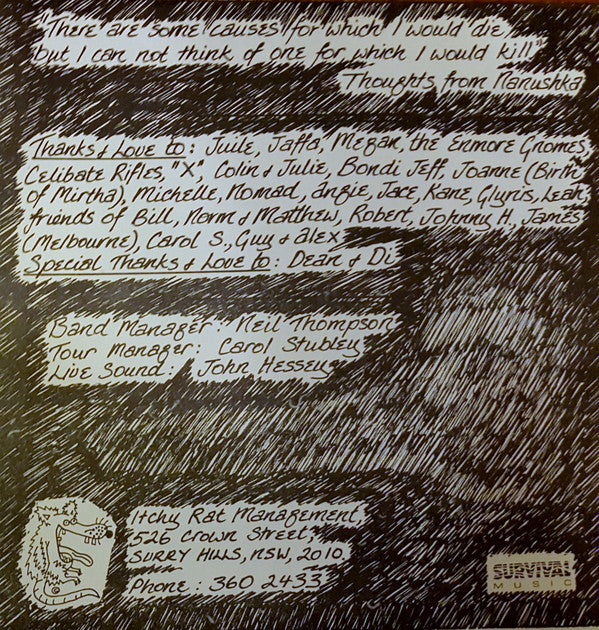 "There are some causes for which I would die,
but I can not think of one for which I would kill"
Thoughts from Nanushka
Thanks & Love to: Juile, Jaffa, Megan, the Enmore Gnomes,
Celibate Rifles, "X", Colin & Julie, Bondi Jeff, Joanne (Birth
of Mirtha), Michelle, Nomad, angie, Jace, Kane, Glynis, Leah,
friends of Bill, Norm & Matthew, Robert, Johnny H, James
(Melbourne), Carol S., Guy & alex
Special Thanks & Love to: Dean & Di
Band Manager: Neil Thompson
Tour Manager: Carol Stubley
Live Sound: John Hessey
Itchy Rat Management,
526 Crown Street,
SURRY HILLS, NSW, 2010
Phone: 360 2433
SURVIVAL
MUSIC